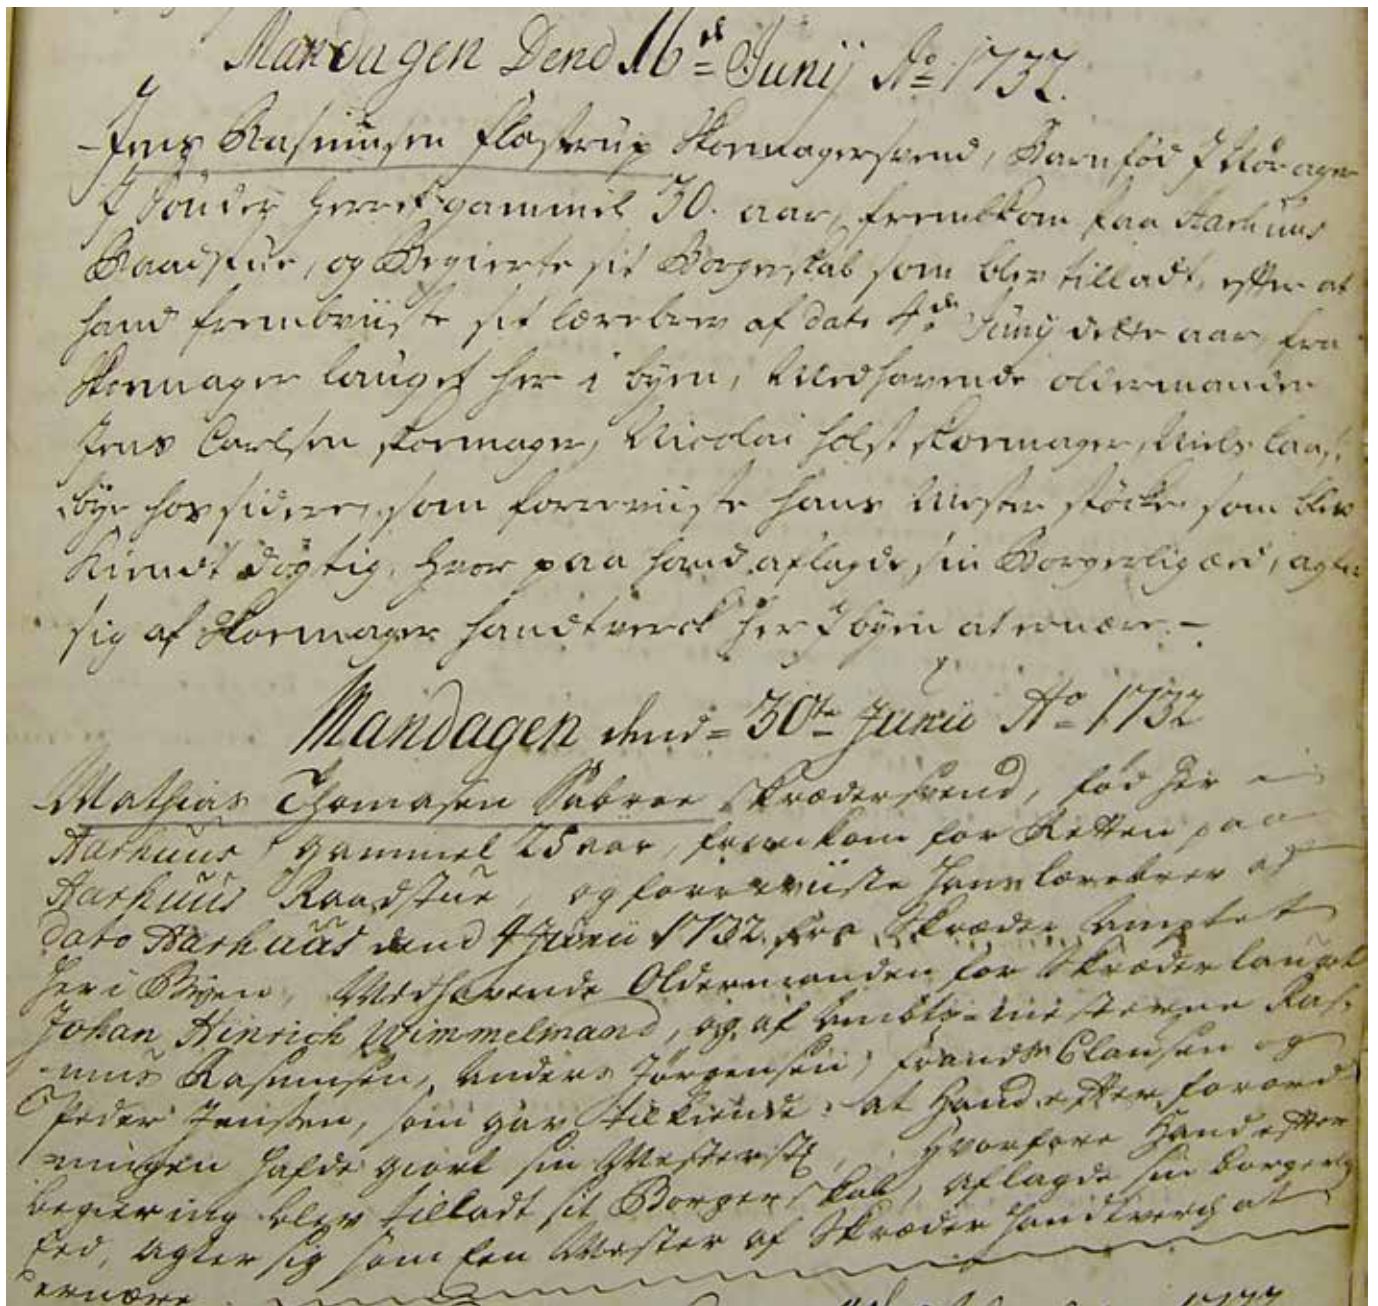 Mandagen Dend 16de Junij Ao 1732.
Jens Rasmusen Flastrup Skoemagersvend, Barnfød I
I Sønder Herret gammel 30. aar, fremkom paa Aarhuus
Raadstue, og Begierte sit Borgerskab som blev tilladt, efter at
hand frembviiste sit lærebrev af dato 4de Junij dette aar, fra
Skoemager lauget her i byen, Medhavende oldermanden
Jens Carlsen skoemager, Nicolai Holst skoemager, Niels
bye hos siddere, som foreviiste hans Mester støcke som blev
Kiendt døgtig, hvor paa hand aflagde sin Borgerlig æed, agter
sig af Skoemager handtverck her I byen at ernære. –
Mandagen dend 30te Junii Ao 1732
Mathias Thomasen Sabroe Skrædersvend, fød her i
Aarhuus, gammel 25 aar, fremkom for Retten paa
Aarhuus Raadstue, og foreviiste hans lærebrev af
dato Aarhuus dend 4 Junii 1732. fra Skræder Amptet
her i Byen, Medhavende Oldermanden for Skræder lauget
Johan Hinrich Wimmelmand, og af Ambts-mesterne Ras-
mus Rasmusen, Anders Jørgensen, Frands Clausen og
Peder Jensen, som gav tilkiende, at Hand efter forord
ningen hafde giort sin Mesterst, Hvorfore Hand efter
begiering blev tilladt sit Borgerskab, aflagde sin borgerlig
Eed, Agter sig som Een Mester af Skræder Handtverch at
ernære